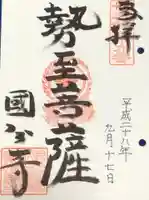 奉拝
勢至菩薩
國分寺
平成二十八年
九月十七日